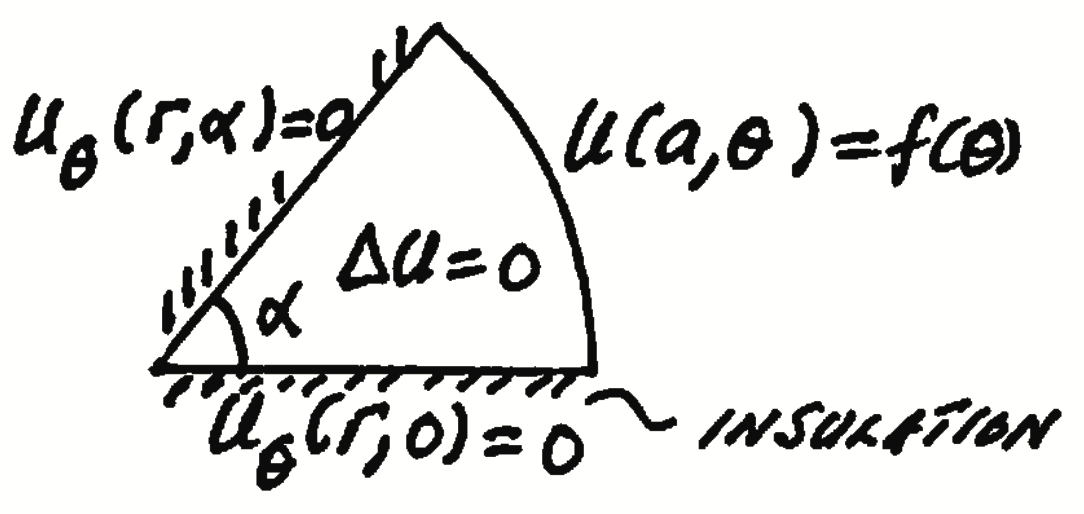 u_θ(r,α)=0
u(a,θ)=f(θ)
Δu=0
α
u_θ(r,0)=0
INSULATION